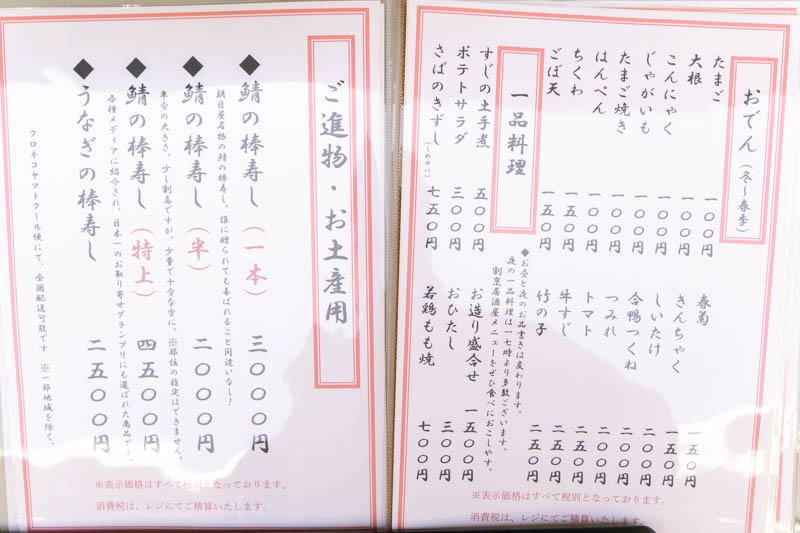 おでん（冬～春季）
たまご 一〇〇円
大根 一〇〇円
こんにゃく 一〇〇円
じゃがいも 一〇〇円
たまご焼き 一〇〇円
はんぺん 一〇〇円
ちくわ 一五〇円
ごぼ天 一五〇円
春菊 一五〇円
きんちゃく 一五〇円
しいたけ 二〇〇円
合鴨つくね 二〇〇円
つみれ 二〇〇円
トマト 二五〇円
牛すじ 二五〇円
竹の子 二五〇円
一品料理
◆お昼と夜のお品書きは変わります。
夜の一品料理は一七時より多数ございます。
割烹居酒屋メニューをぜひ食べにおこしやす。
すじの土手煮 五〇〇円
ポテトサラダ 三〇〇円
さばのきずし（しめサバ） 七五〇円
お造り盛合せ 一五〇〇円
おひたし 三〇〇円
若鶏もも焼 七〇〇円
※表示価格はすべて税別となっております。
消費税は、レジにてご精算いたします。
ご進物・お土産用
◆鯖の棒寿し（一本） 三〇〇〇円
朝日屋名物の鯖の棒寿し。誰に贈られても喜ばれること間違いなし！
◆鯖の棒寿し（半） 二〇〇〇円
半分の大きさ。少し割高ですが、少量で十分な方に。※部位の指定はできません。
◆鯖の棒寿し（特上） 四五〇〇円
各種メディアに紹介され、日本一のお取り寄せグランプリにも選ばれた商品です。
◆うなぎの棒寿し 二五〇〇円
クロネコヤマトクール便にて、全国配送可能です ※一部地域を除く。
※表示価格はすべて税別となっております。
消費税は、レジにてご精算いたします。